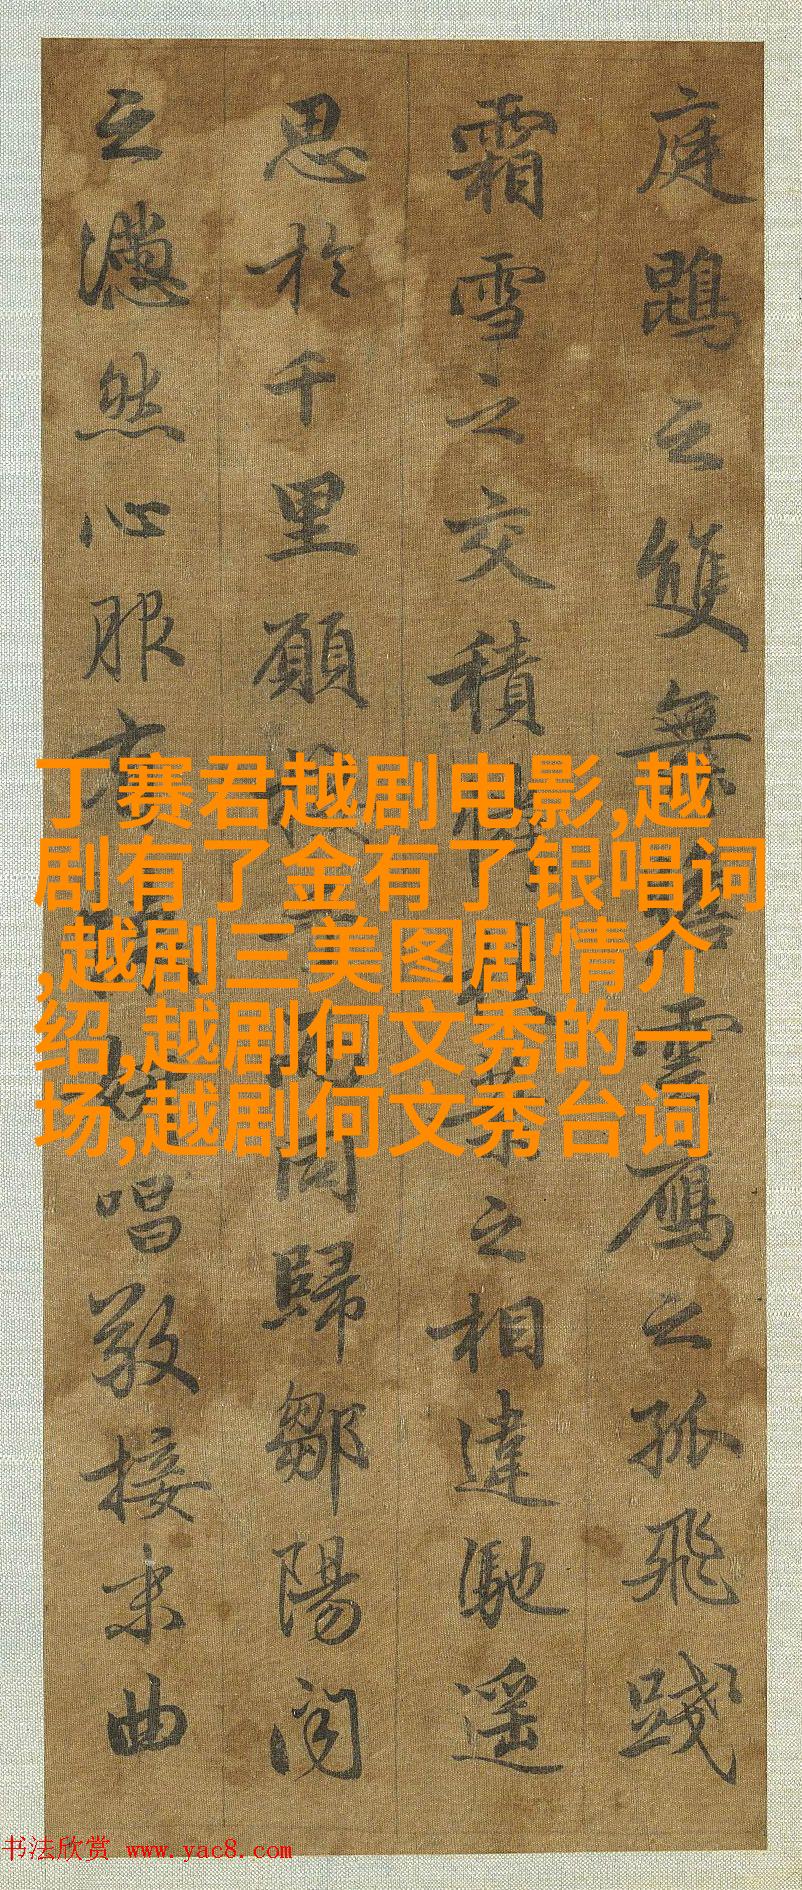 庭鵾之雙舞瞻雲鴈之孤飛踐
霜雪之交積憐葉之相違馳遥
思於千里願而同歸鄒陽聞
之懣然心服有妍唱敬接末曲
丁赛君越剧电影,越
剧有了金有了银唱词
,越剧三美图剧情介
绍,越剧何文秀的一
场,越剧何文秀台词
书法欣赏 www.yac8.com